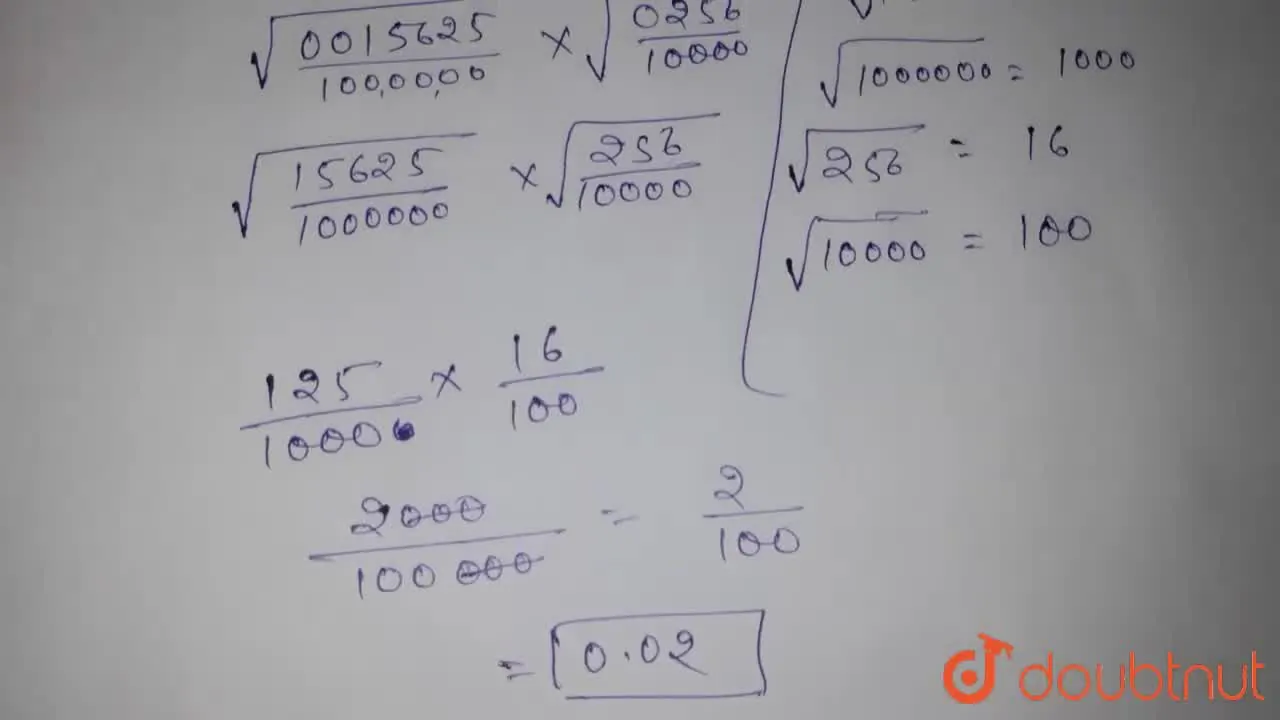 √(0015625/100,00,00) × √(0256/10000)
√(15625/1000000) × √(256/10000)
125/1000 × 16/100
2000/100000 = 2/100
= 0.02
√1000000 = 1000
√256 = 16
√10000 = 100
doubtnut